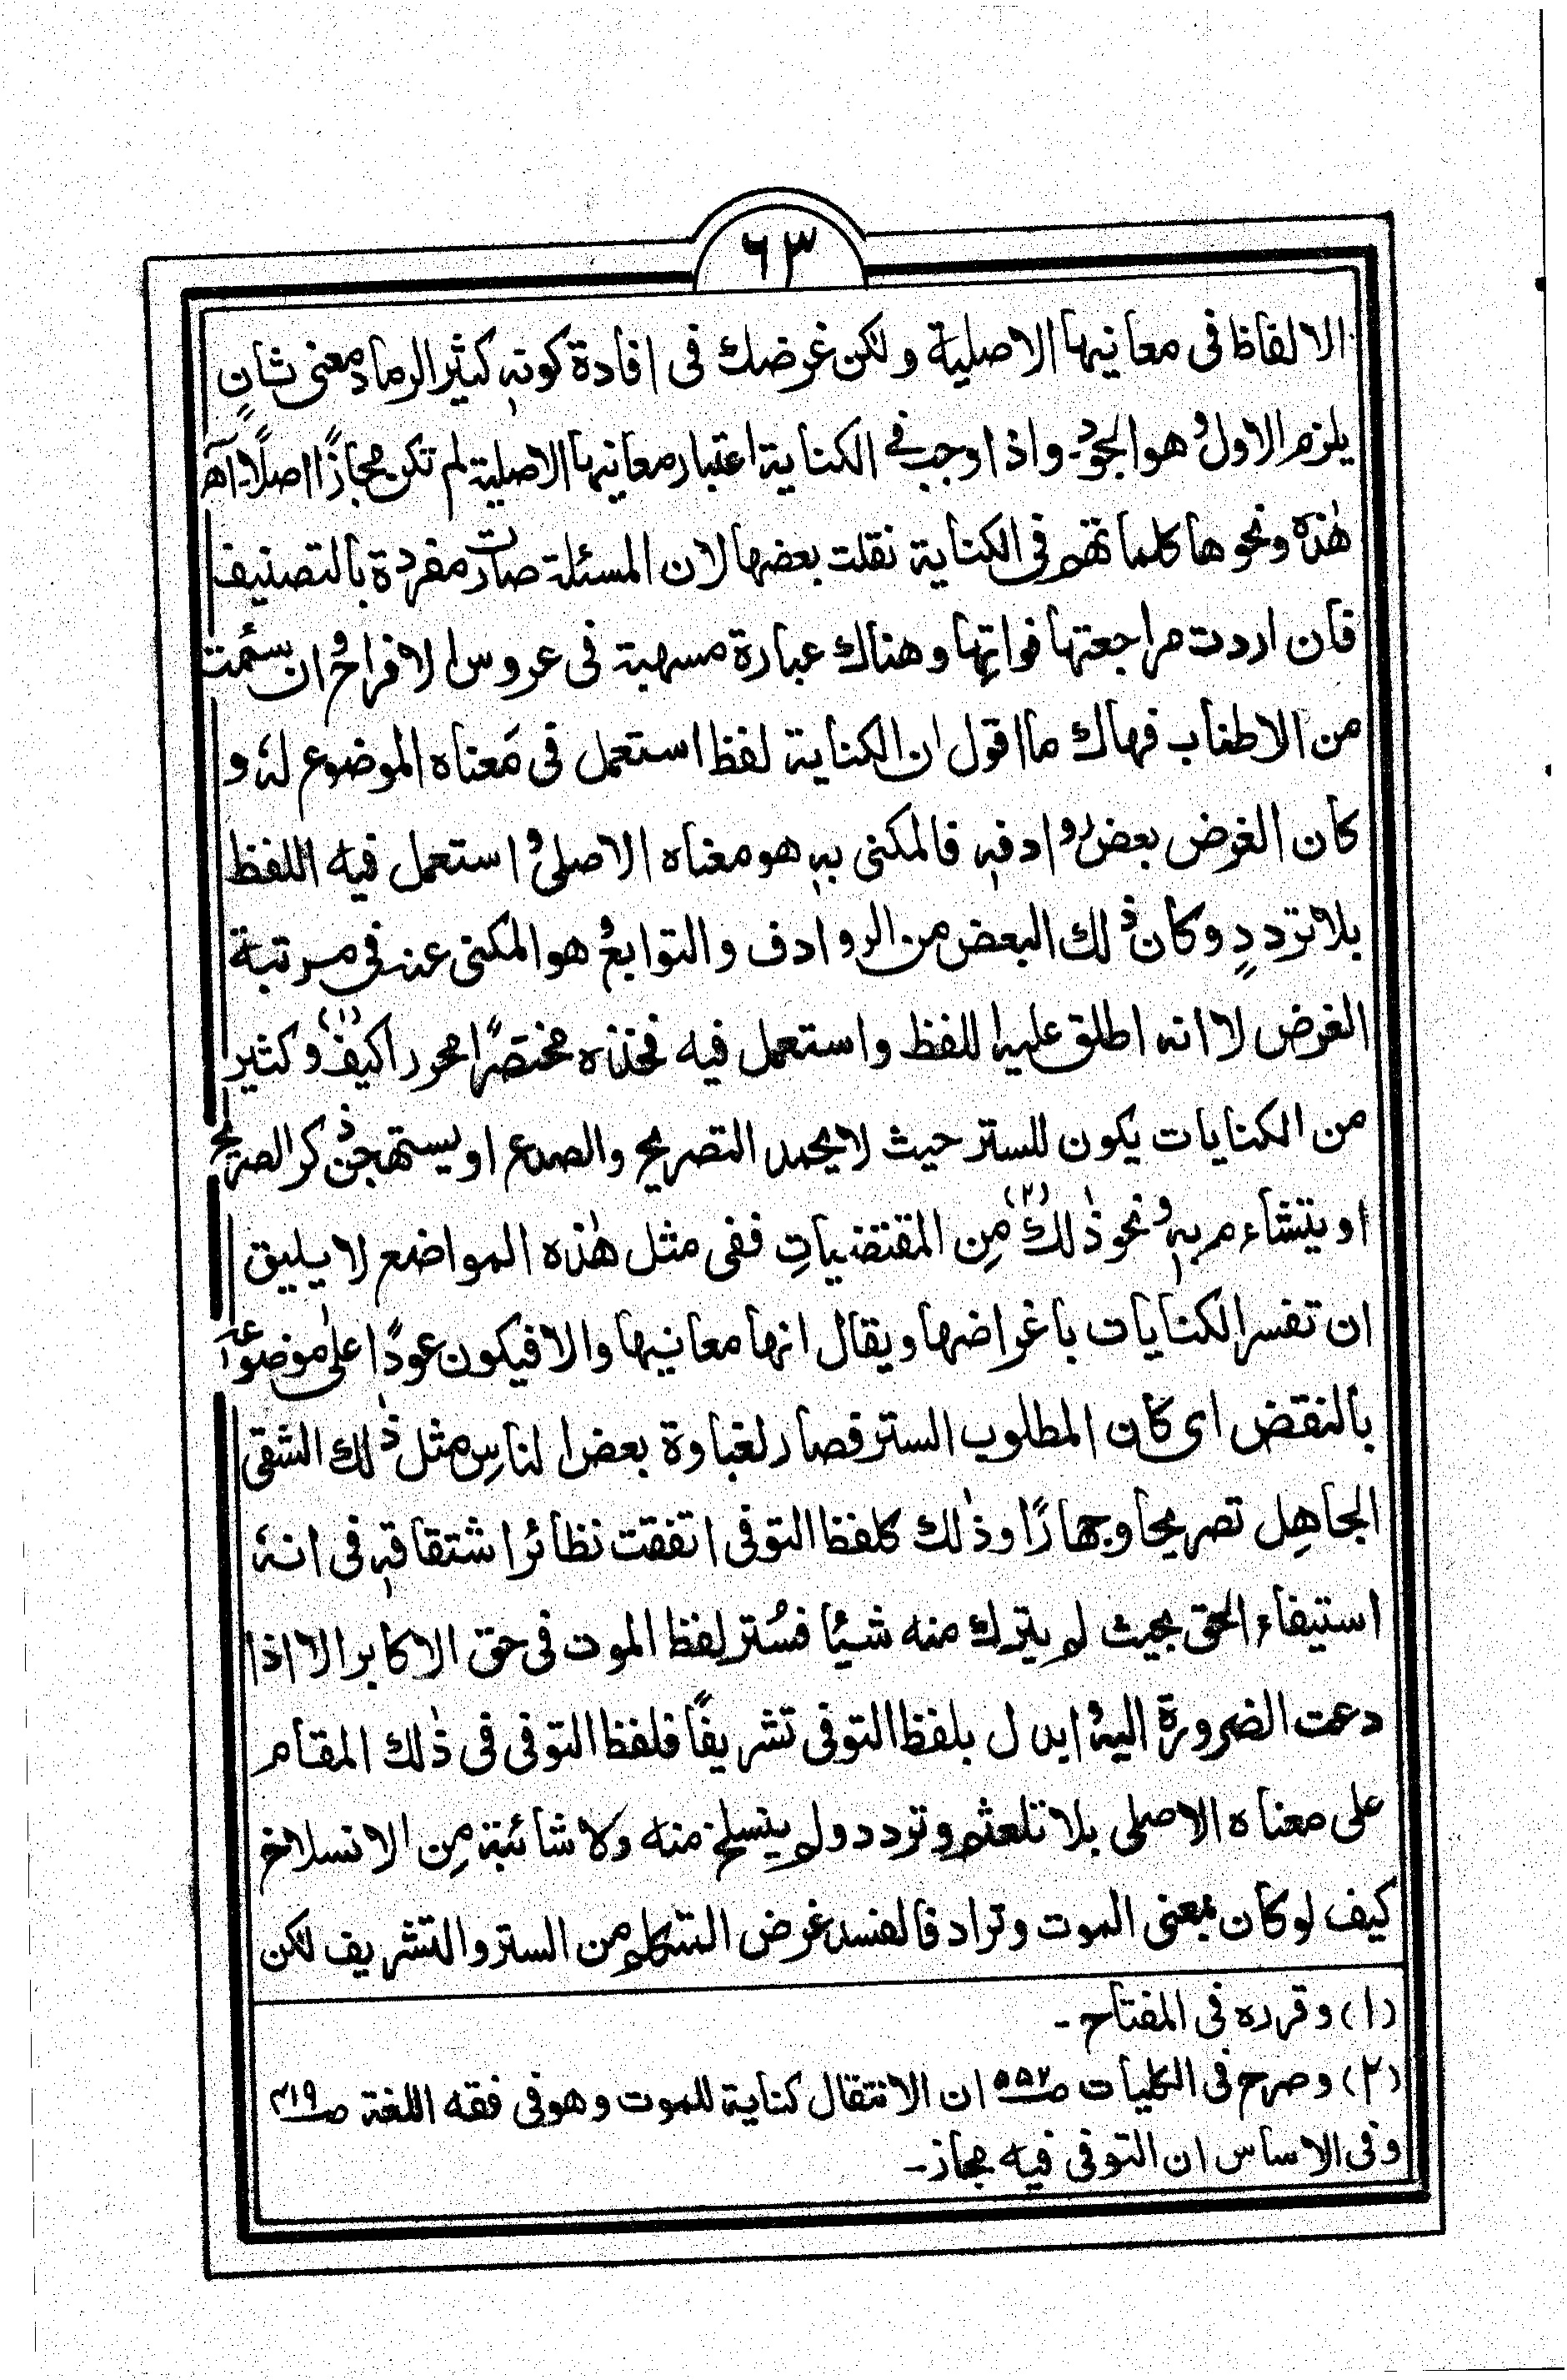 ٦٣
الالفاظ فى معانيها الاصلية ولكن غرضك فى افادة كونه كثير الرماد معنى ثانٍ
يلزم الاول وهو الجود۔ واذا وجب فى الكناية اعتبار معانيها الاصلية لم تكن مجازًا اصلًا۔ اھ
هٰذه ونحوها كلماتهم فى الكناية نقلت بعضها لان المسئلة صارت مفردة بالتصنيف
فان اردت مراجعتها فواتِها وهناك عبارة مسهبة فى عروس الافراح وان سئمت
من الاطناب فهاك ما اقول ان الكناية لفظ استعمل فى مَعناه الموضوع لهٗ و
كان الغرض بعض روادفهٖ فالمكنى بهٖ هو معناه الاصلى واستعمل فيه اللفظ
بلا ترددٍ وكان ذلك البعض من الروادف والتوابع وهو المكنى عنه فى مرتبة
الغرض لا انه اطلق عليه اللفظ واستعمل فيه فخذه مختصرًا محررا كيف (١) وكثير
من الكنايات يكون للستر حيث لا يحمد التصريح والصدع او يستهجن ذكر الصريح
او يتشاءم بهٖ ونحو ذٰلك (٢) مِن المقتضياتِ ففى مثل هٰذه المواضع لا يليق
ان تفسر الكنايات باغراضها ويقال انها معانيها والا فيكون عودًا على موضوعها
بالنقض اى كان المطلوب الستر فصار لغباوة بعض الناسِ مثل ذٰلك الشقى
الجاهِل تصريحا وجهارًا وذٰلك كلفظ التوفى اتفقت نظائر اشتقاقهٖ فى انهٗ
استيفاء الحق بحيث لم يترك منه شيئا فسُتر لفظ الموت فى حق الاكابر الا اذا
دعت الضرورة اليه وابدل بلفظ التوفى تشريفًا فلفظ التوفى فى ذٰلك المقام
على معناه الاصلى بلا تلعثم وتردد ولم ينسلخ منه ولا شائبة مِن الانسلاخ
كيف لو كان بمعنى الموت وترادفا لفسد غرض المتكلم من الستر والتشريف لكن
(١) وقرره فى المفتاح۔
(٢) وصرح فى الكليات صـ٥٥٢ ان الانتقال كناية للموت وهو فى فقه اللغة صـ٤١٩
وفى الاساس ان التوفى فيه مجاز۔